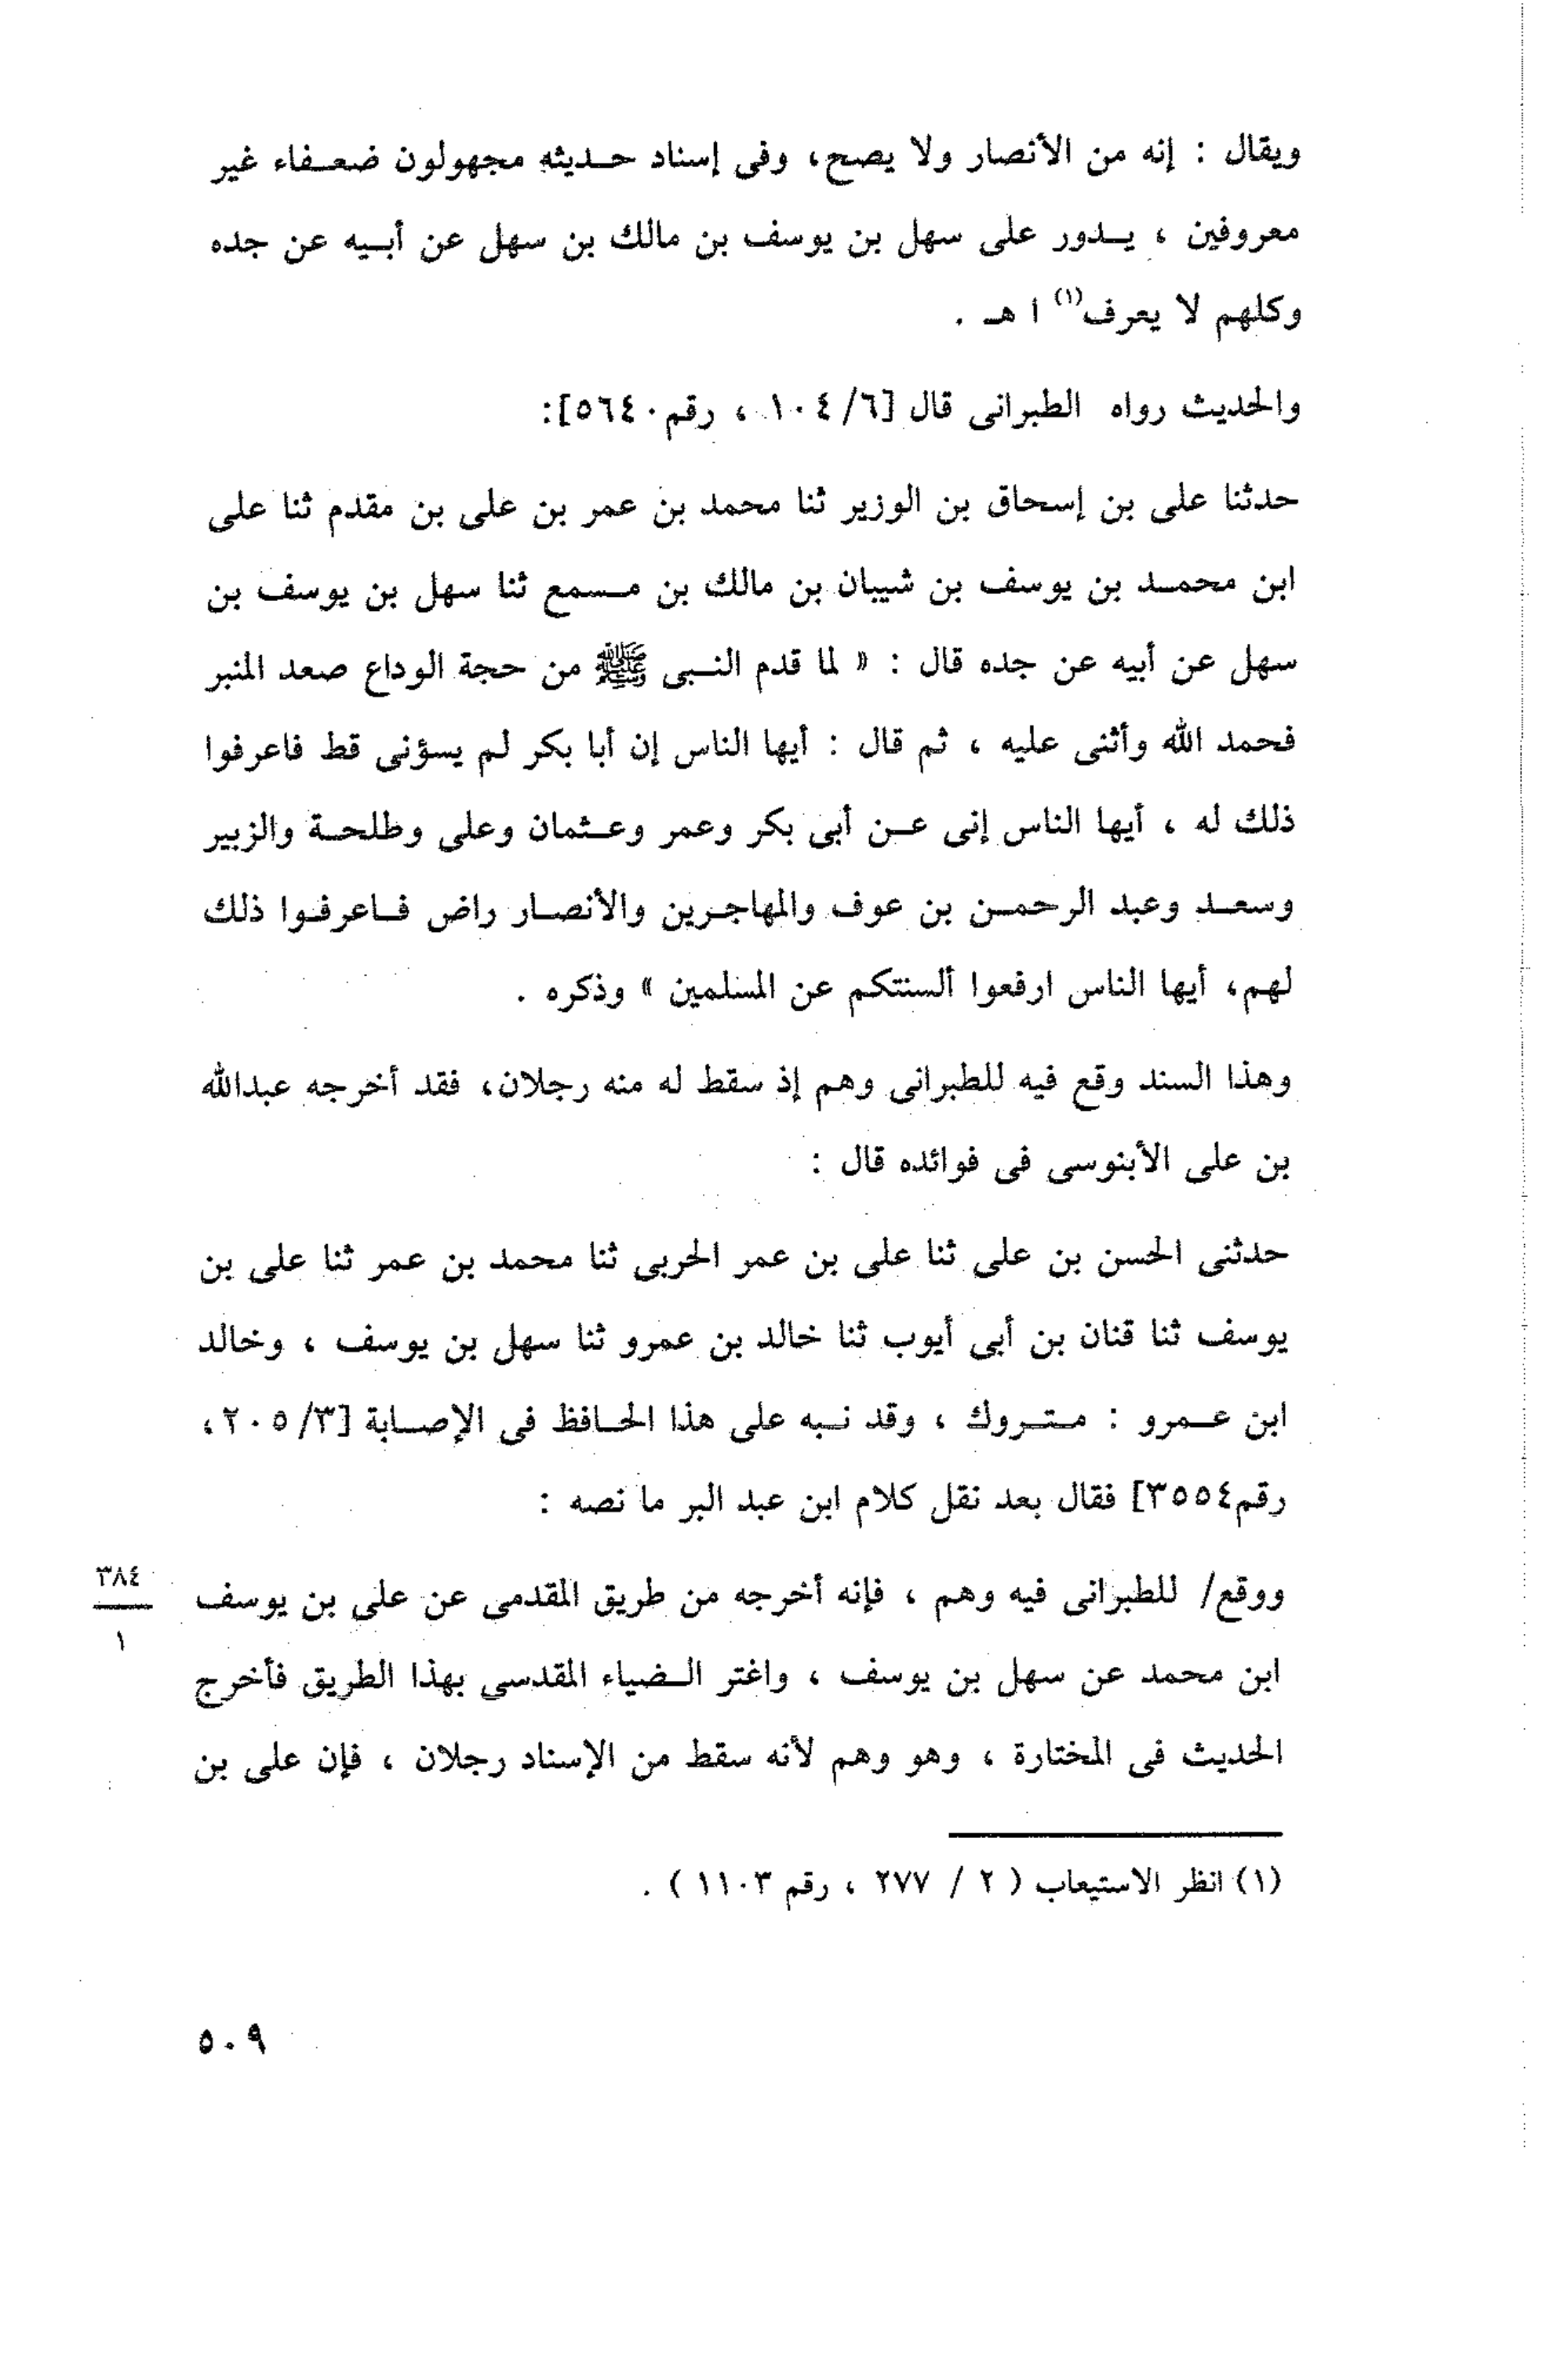 ويقال : إنه من الأنصار ولا يصح، وفى إسناد حـديثه مجهولون ضعـفاء غير
معروفين ، يـدور على سهل بن يوسف بن مالك بن سهل عن أبـيه عن جده
وكلهم لا يعرف(١) ا هـ .
والحديث رواه الطبرانى قال [٦/ ١٠٤ ، رقم ٥٦٤٠]:
حدثنا على بن إسحاق بن الوزير ثنا محمد بن عمر بن على بن مقدم ثنا على
ابن محمـد بن يوسف بن شيبان بن مالك بن مـسمع ثنا سهل بن يوسف بن
سهل عن أبيه عن جده قال : « لما قدم النـبى ﷺ من حجة الوداع صعد المنبر
فحمد الله وأثنى عليه ، ثم قال : أيها الناس إن أبا بكر لم يسؤنى قط فاعرفوا
ذلك له ، أيها الناس إنى عـن أبى بكر وعمر وعـثمان وعلى وطلحـة والزبير
وسعـد وعبد الرحمـن بن عوف والمهاجـرين والأنصـار راض فـاعرفـوا ذلك
لهم، أيها الناس ارفعوا ألسنتكم عن المسلمين » وذكره .
وهذا السند وقع فيه للطبرانى وهم إذ سقط له منه رجلان، فقد أخرجه عبدالله
بن على الأبنوسى فى فوائده قال :
حدثنى الحسن بن على ثنا على بن عمر الحربى ثنا محمد بن عمر ثنا على بن
يوسف ثنا قنان بن أبى أيوب ثنا خالد بن عمرو ثنا سهل بن يوسف ، وخالد
ابن عـمرو : مـتـروك ، وقد نـبه على هذا الحـافظ فى الإصـابة [٣/ ٢٠٥ ،
رقم ٣٥٥٤] فقال بعد نقل كلام ابن عبد البر ما نصه :
ووقع/ للطبرانى فيه وهم ، فإنه أخرجه من طريق المقدمى عن على بن يوسف
٣٨٤
١
ابن محمد عن سهل بن يوسف ، واغتر الـضياء المقدسى بهذا الطريق فأخرج
الحديث فى المختارة ، وهو وهم لأنه سقط من الإسناد رجلان ، فإن على بن
(١) انظر الاستيعاب ( ٢ / ٢٧٧ ، رقم ١١٠٣ ) .
٥٠٩